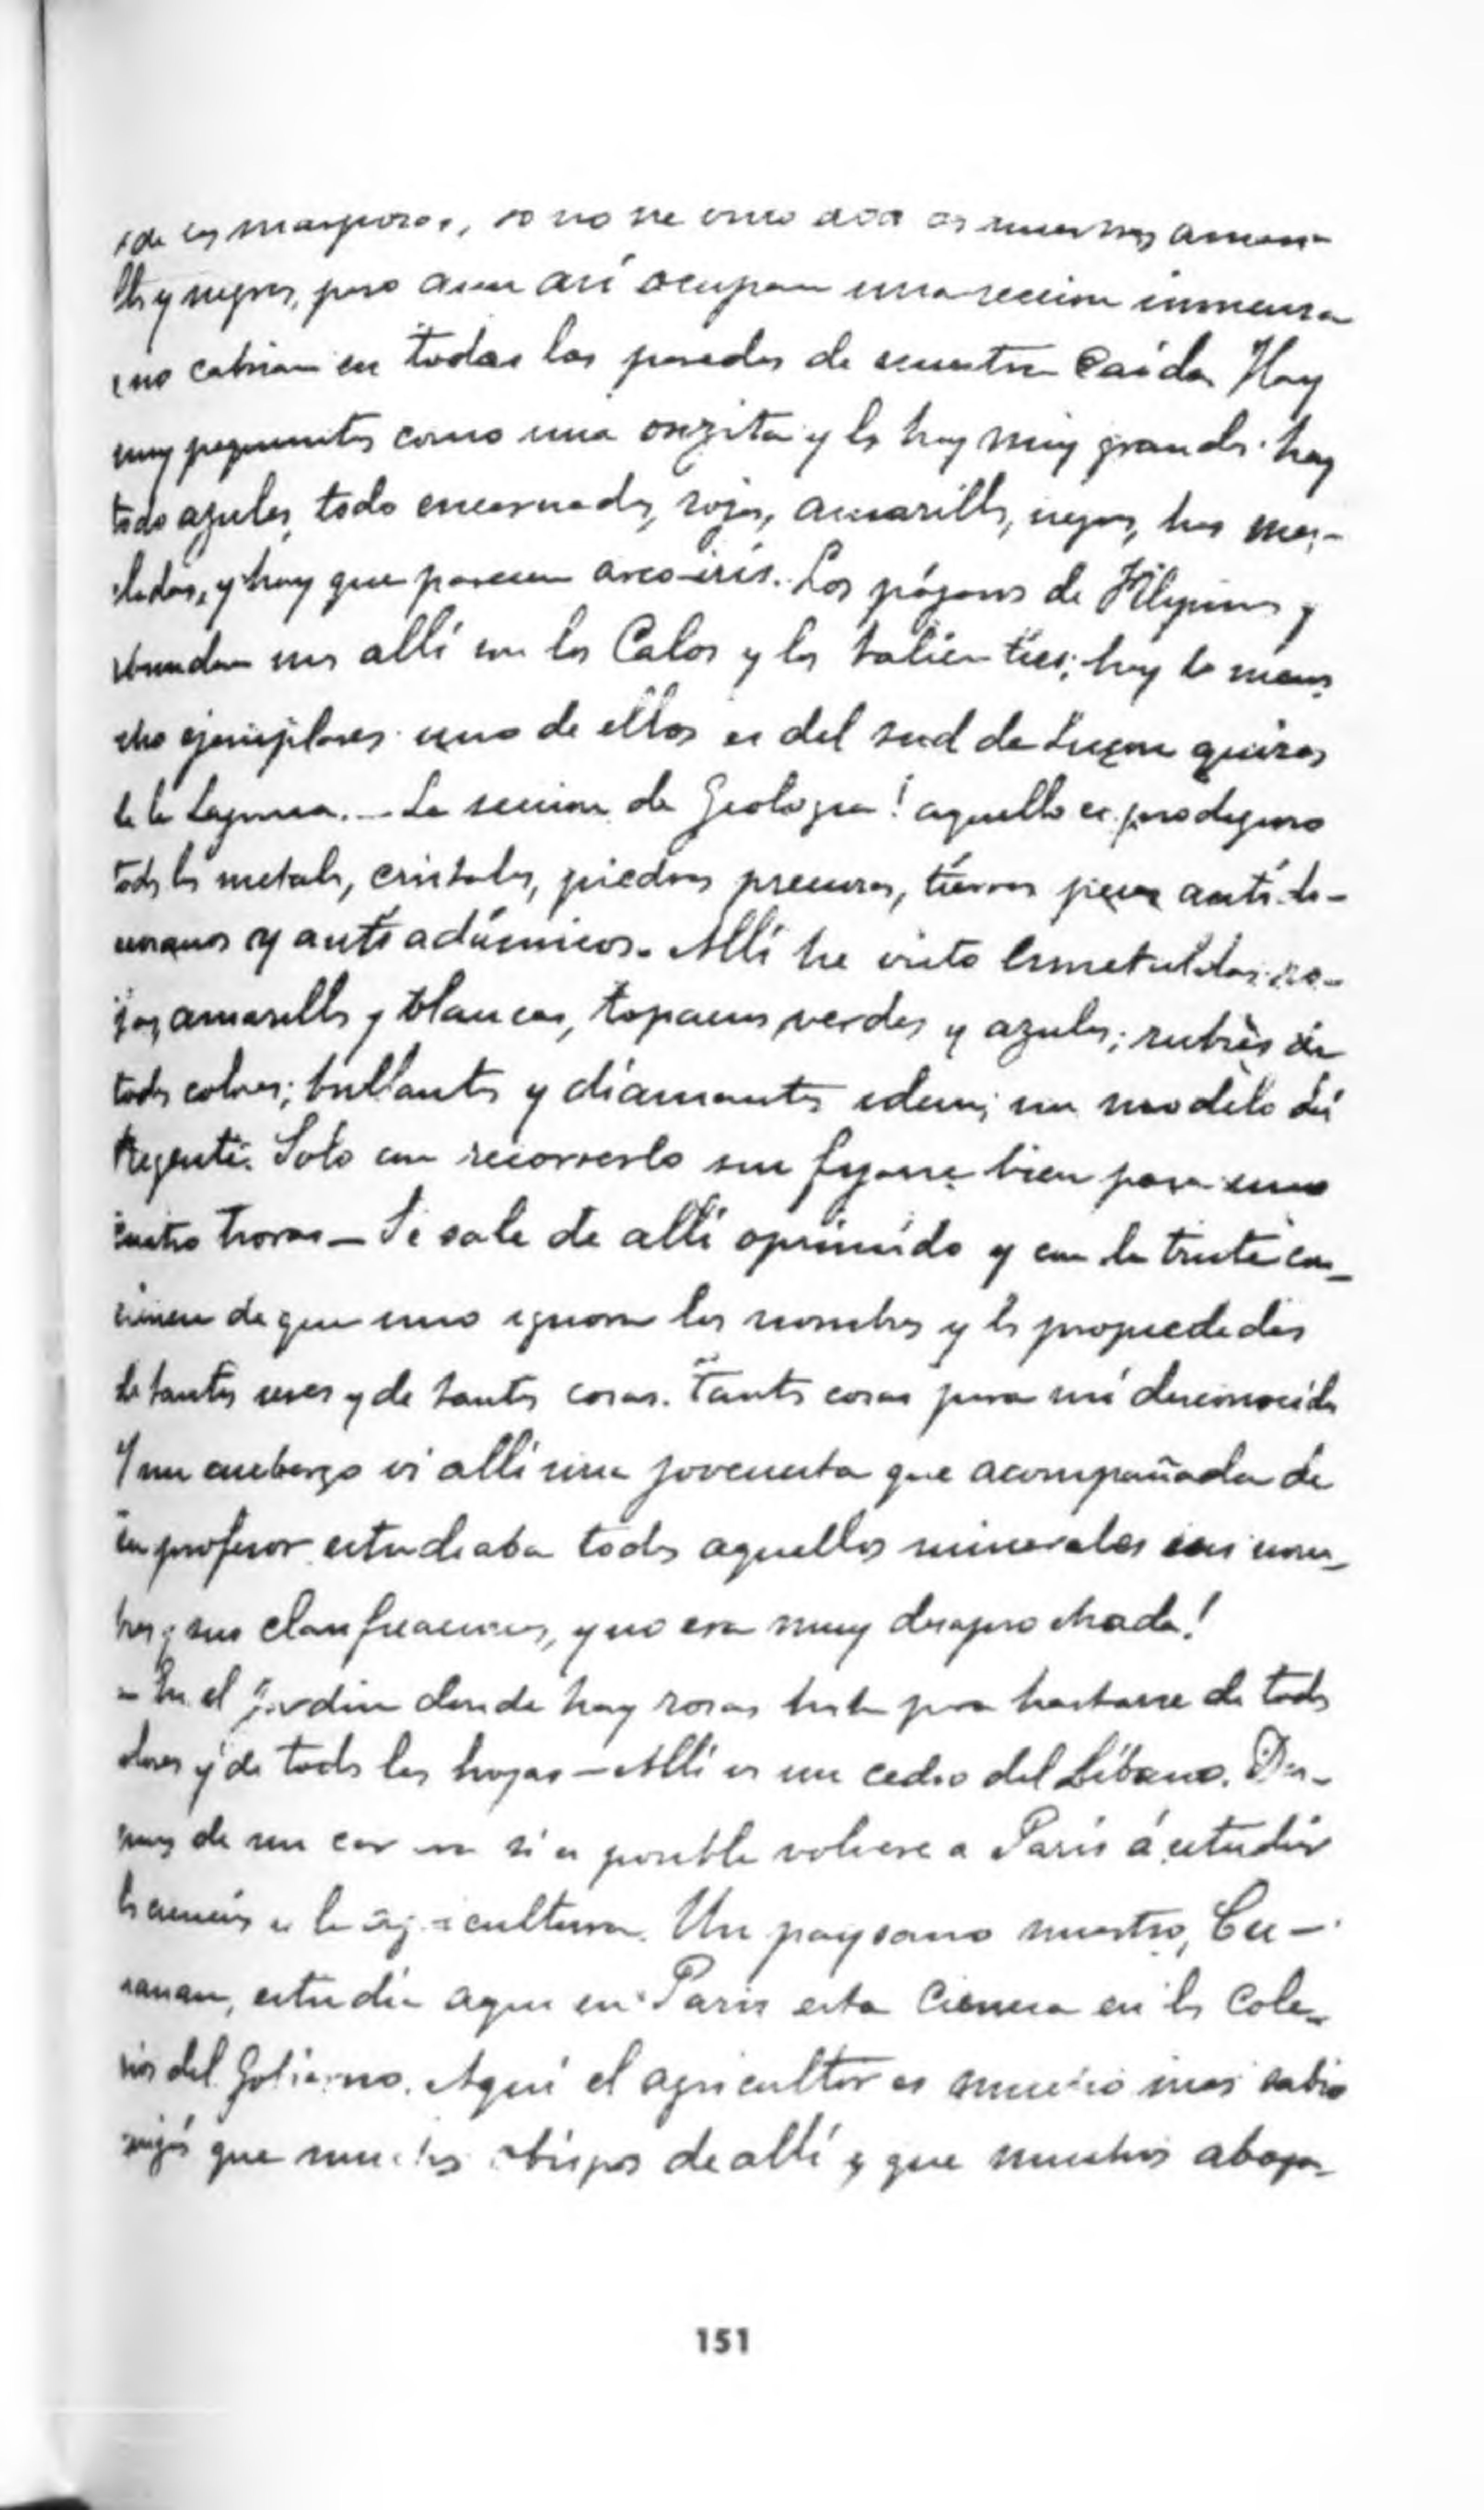 de las mariposas, yo no he visto
llos y negros, pero aun así ocupan una seccion inmensa
no cabrian en todas las paredes de nuestra Caida. Hay
muy pequeñitas como una y las hay muy grandes. hay
todo azules, todo encarnadas, rojas, amarillas, negras, las mez-
cladas, y hay que parecen arco-iris. Los pájaros de Filipinas y
abundan mas allí son los Calos y los hay lo menos
ocho ejemplares: uno de ellos es del sud de Luzon quizas
de la Laguna. — La seccion de Geologia! aquello es prodigioso
todos los metales, cristales, piedras preciosas, tierras antidi-
luvianos y anteadámicos. Allí he visto esmeraldas ro-
jas, amarillas y blancas, topacios verdes y azules; rubíes de
todos colores; brillantes y diamantes idem; un modelo del
Regente. Solo con recorrerlo sin fijarse bien pasa uno
cuatro horas — Se sale de allí oprimido y con la triste con-
ciencia de que uno ignora los nombres y las propiedades
de tantos seres y de tantas cosas. Tantas cosas para mí desconocidas
Y sin embargo vi allí una jovencita que acompañada de
un profesor estudiaba todos aquellos minerales sus nom-
bres y sus clasificaciones, y no era muy desaprovechada!
En el jardin donde hay rosas hasta para hartarse de todos
colores y de todas las hojas — Allí es un cedro del Líbano. Des-
pues de mi si es posible volveré a Paris á estudiar
las ciencias la agricultura. Un paysano nuestro, Ce-
estudia aqui en Paris esta ciencia en los Cole-
gios del Gobierno. Aquí el agricultor es mucho mas sabio
que muchos obispos de allí y que muchos aboga-
151